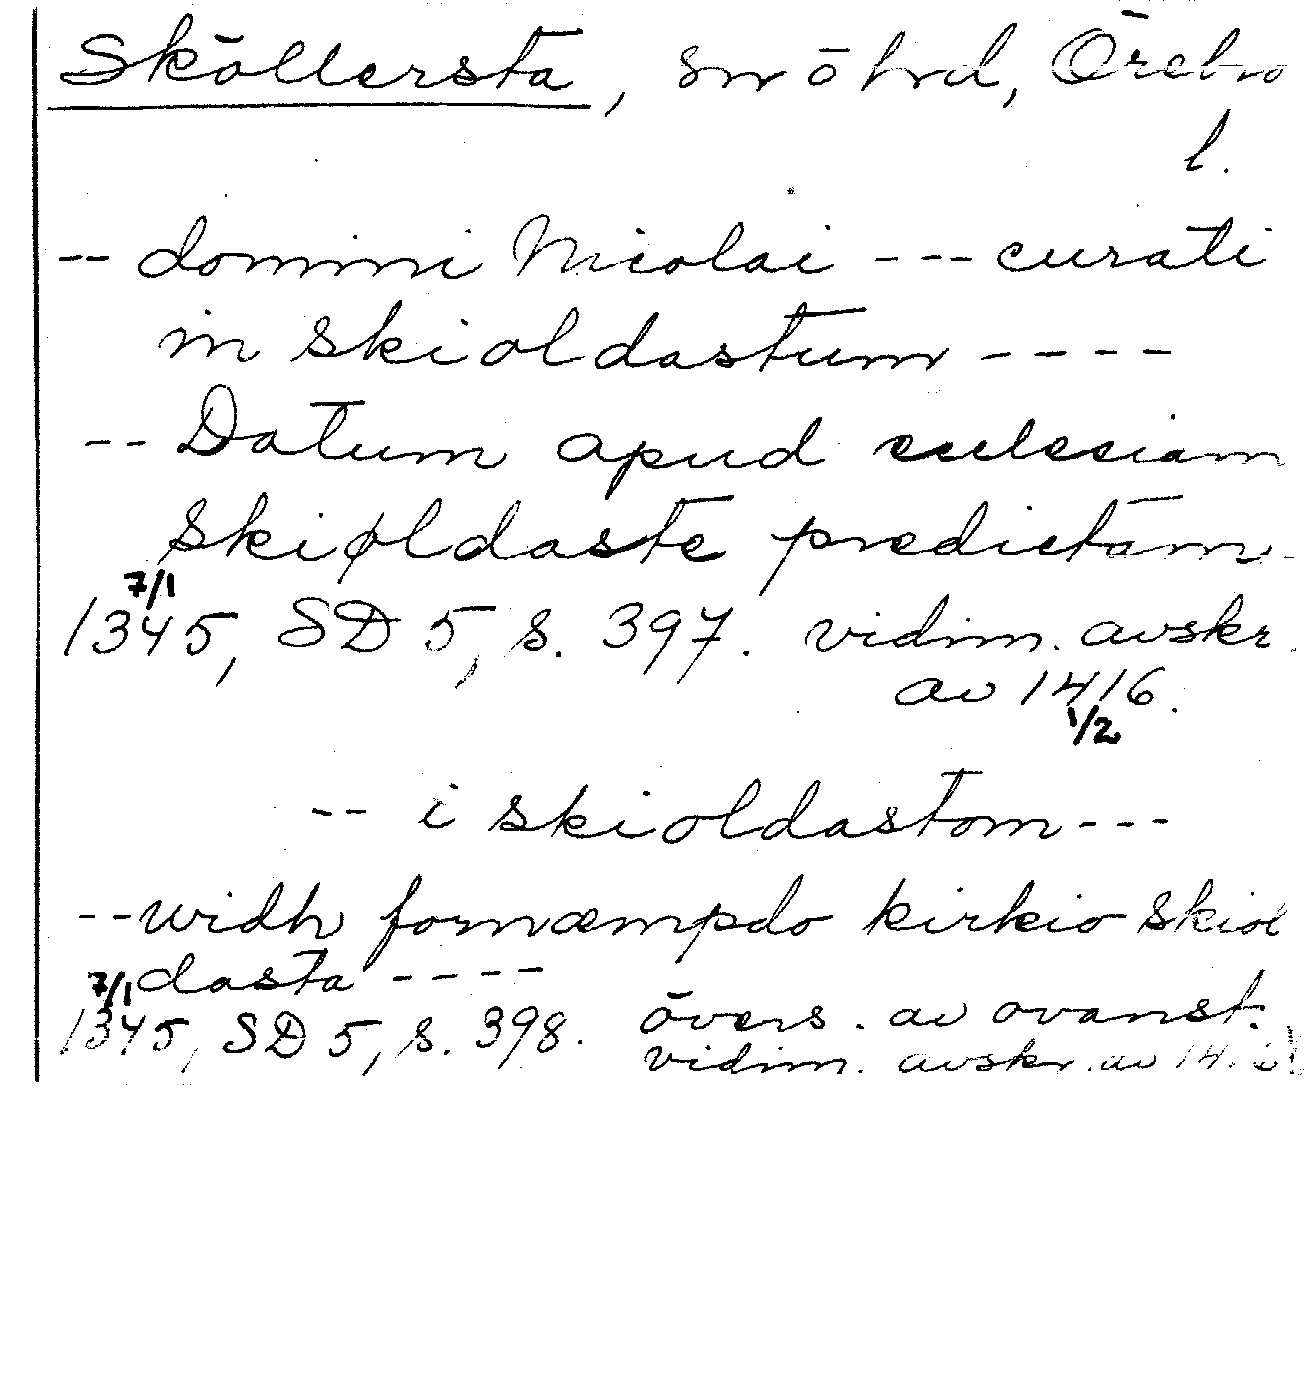 Sköllersta, sn ö hrd, Örebro
l.
-- domini Nicolai --- curati
in skioldastum ----
-- Datum apud ecclesiam
skiøldaste predictam -
7/1
1345, SD 5, s. 397. vidim. avskr.
av 1416.
1/2
-- i skioldastom ---
-- widh fornæmpdo kirkio skiol
dasta ----
7/1
1345, SD 5, s. 398. övers. av ovanst.
vidim. avskr. av